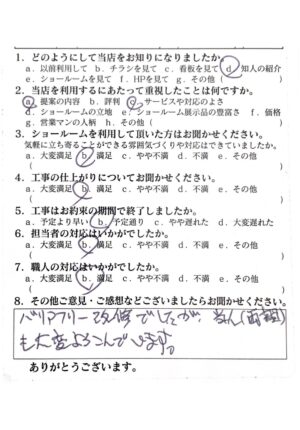 1. どのようにして当店をお知りになりましたか。
a. 以前利用して b. チラシを見て c. 看板を見て d. 知人の紹介
e. ショールームを見て f. HPを見て g. その他
2. 当店を利用するにあたって重視したことは何ですか。
a. 提案の内容 b. 評判 c. サービスや対応のよさ
d. ショールームの立地 e. ショールーム展示品の豊富さ f. 価格
g. 営業マンの人柄 h. その他( )
3. ショールームを利用して頂いた方はお聞かせください。
気軽に立ち寄ることができる雰囲気づくりや対応はできていましたか。
a. 大変満足 b. 満足 c. やや不満 d. 不満 e. その他
( )
4. 工事の仕上がりについてお聞かせください。
a. 大変満足 b. 満足 c. やや不満 d. 不満 e. その他
( )
5. 工事はお約束の期間で終了しましたか。
a. 予定より早い b. 予定通り c. やや遅れた d. 大変遅れた
6. 担当者の対応はいかがでしたか。
a. 大変満足 b. 満足 c. やや不満 d. 不満 e. その他
( )
7. 職人の対応はいかがでしたか。
a. 大変満足 b. 満足 c. やや不満 d. 不満 e. その他
( )
8. その他ご意見・ご感想などございましたらお聞かせください。
バリアフリー改修でしたが、
も大変よろこんでいます。
ありがとうございます。